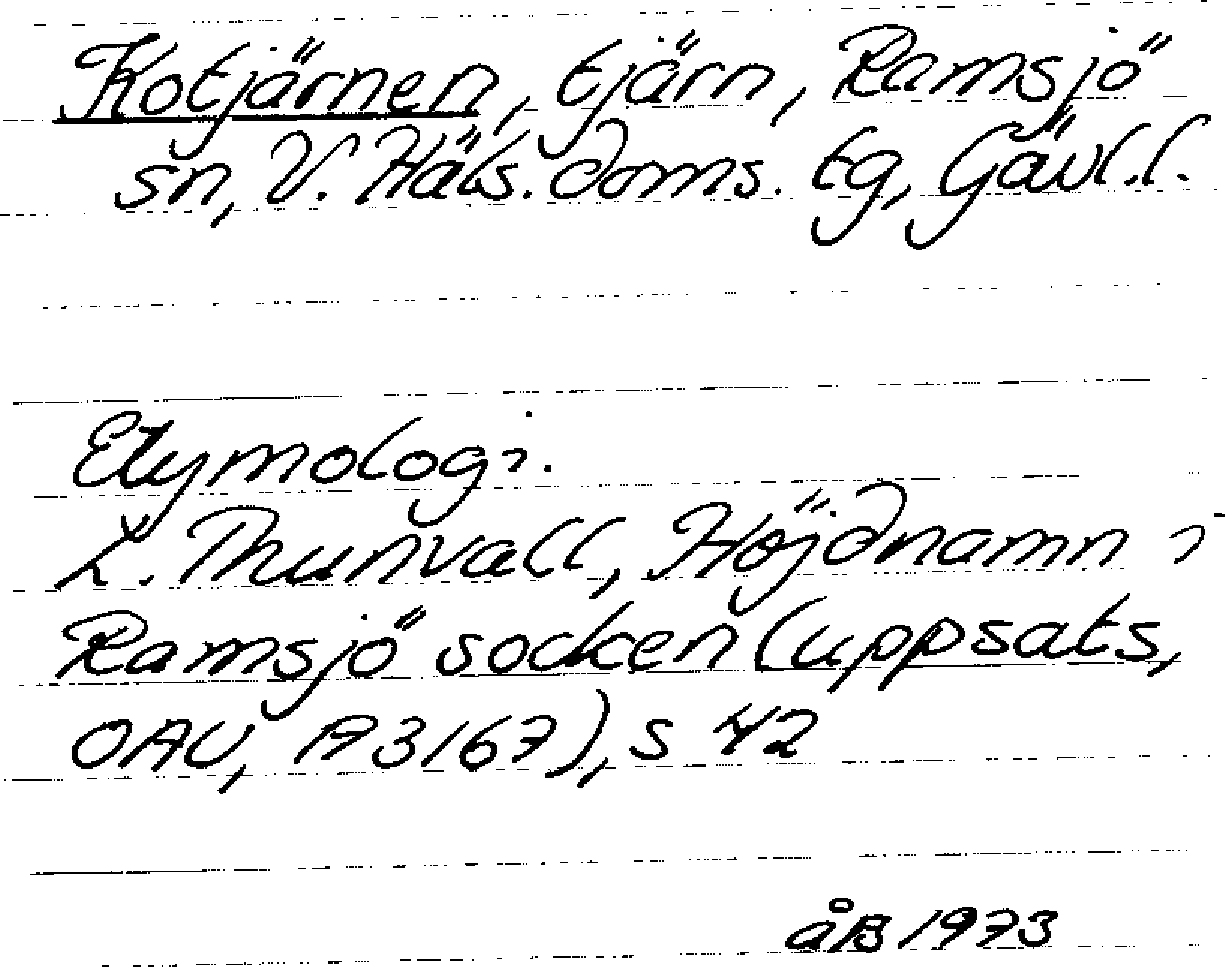 Kotjärnen, tjärn, Ramsjö
sn, V. Häls. doms. tg, Gävl.l.
Etymologi.
L. Thunvall, Höjdnamn i
Ramsjö socken (uppsats,
OAU, A3167), s 42
åB 1973